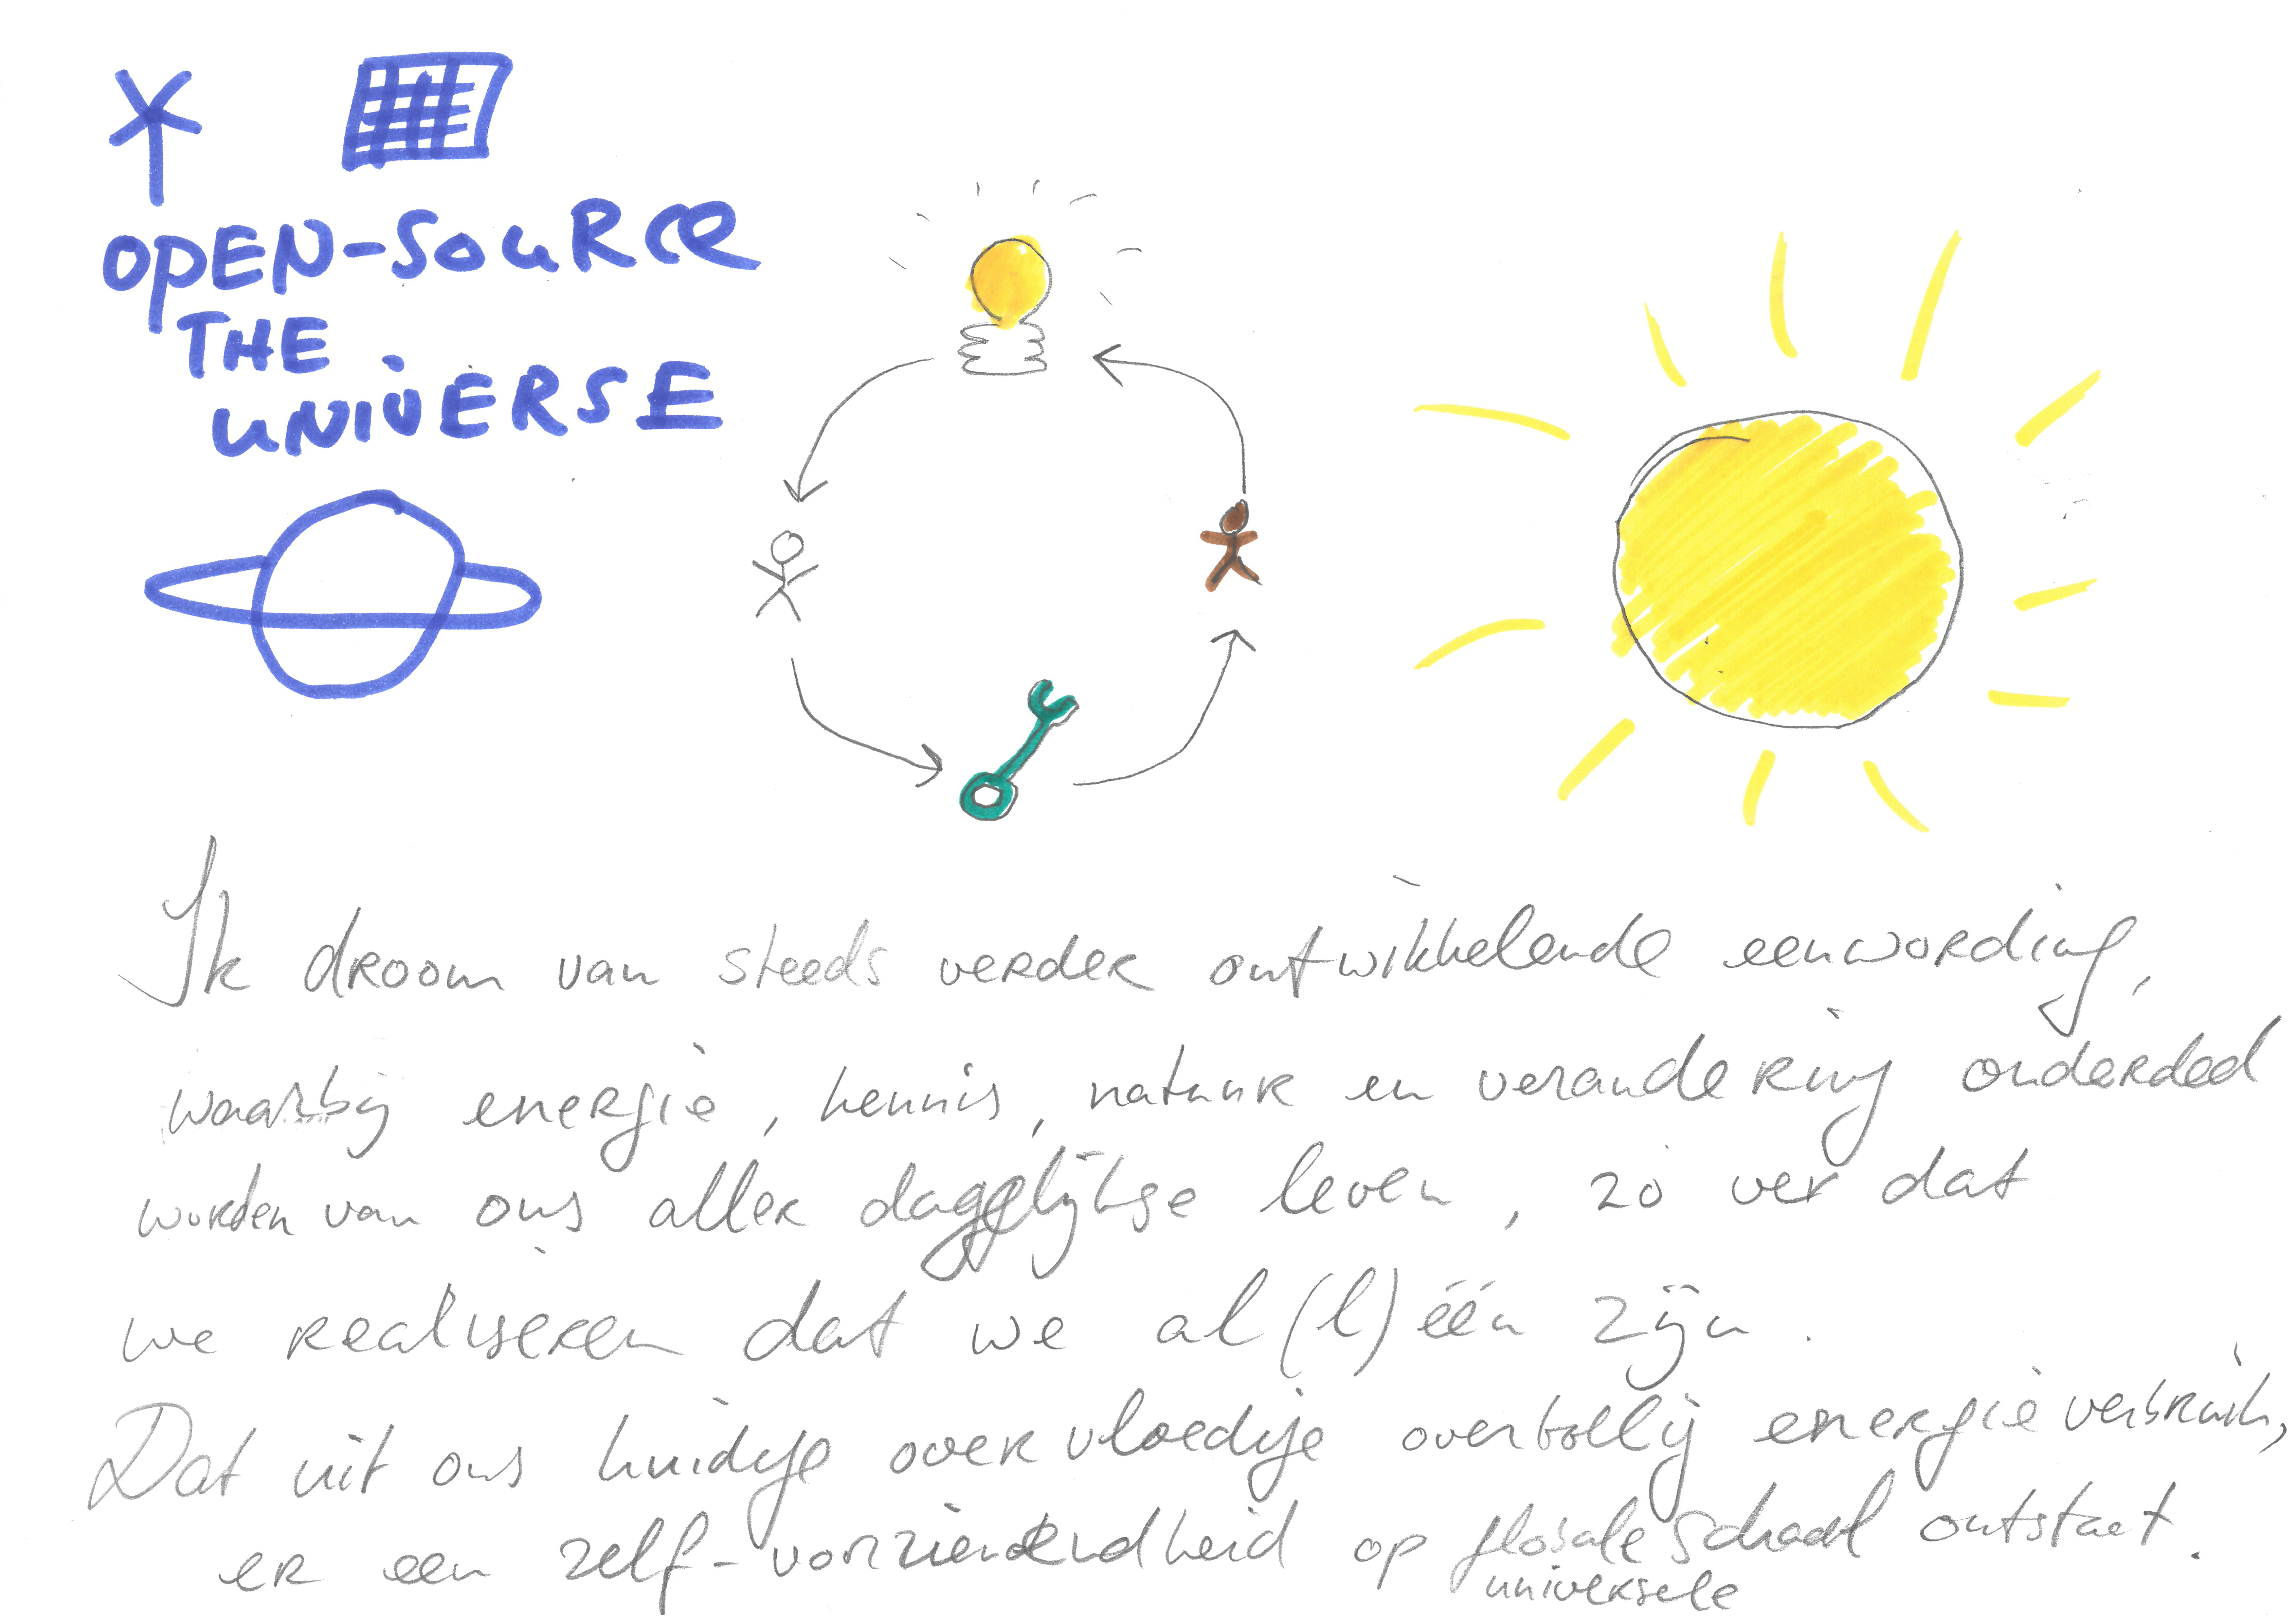 OPEN-SOURCE
THE
UNIVERSE
Ik droom van steeds verder ontwikkelende eenwording,
waarbij energie, kennis, natuur en verandering onderdeel
worden van ons aller dagelijkse leven, zo ver dat
we realiseren dat we al(l) één zijn.
Dat uit ons huidige overvloedige overbollig energieverbruik,
er een zelf-voorzienendheid op globale schaal ontstaat.
universele